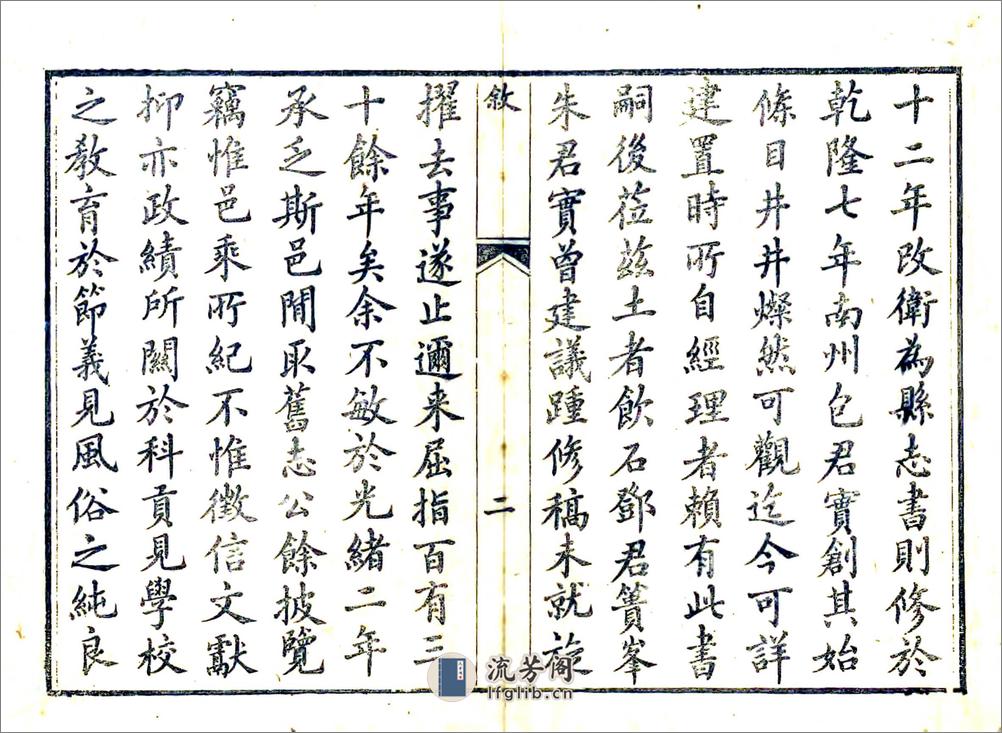 十二年改衛為縣志書則修於
乾隆七年南州包君實創其始
條目井井燦然可觀迄今可詳
建置時所自經理者賴有此書
嗣後莅茲土者飲石鄧君簣峯
朱君實曾建議踵修稿未就旋
敘
二
擢去事遂止邇来屈指百有三
十餘年矣余不敏於光緒二年
承乏斯邑閒取舊志公餘披覽
竊惟邑乘所紀不惟徵信文獻
抑亦政績所關於科貢見學校
之教育於節義見風俗之純良
流芳阁
lfglib.cn